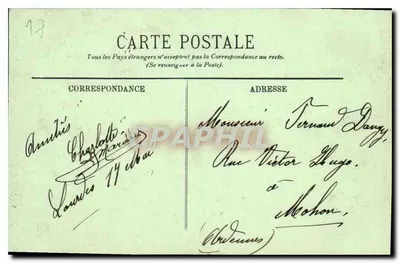 17
CARTE POSTALE
Tous les Pays étrangers n'acceptent pas la Correspondance au recto.
(Se renseigner à la Poste).
CORRESPONDANCE
Amitiés
Charlotte
Lourdes 17 Mai
ADRESSE
Monsieur Fernand Dangy
Rue Victor Hugo.
à
Mohon.
(Ardennes)
DELCAMPE